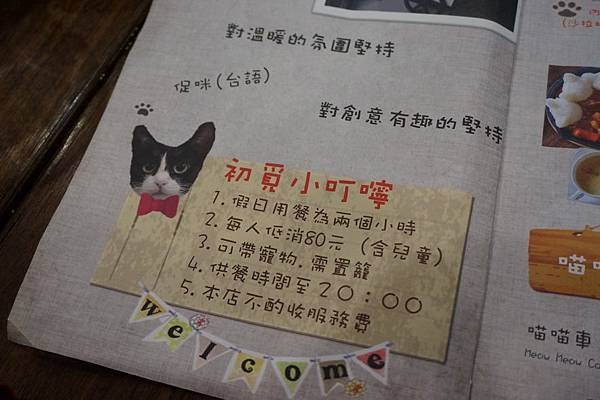 對溫暖的氛圍堅持
促咪(台語)
對創意有趣的堅持
初覓小叮嚀
1. 假日用餐為兩個小時
2. 每人低消80元 (含兒童)
3. 可帶寵物. 需置籠
4. 供餐時間至20:00
5. 本店不酌收服務費
welcome
喵
喵喵車
Meow Meow Ca